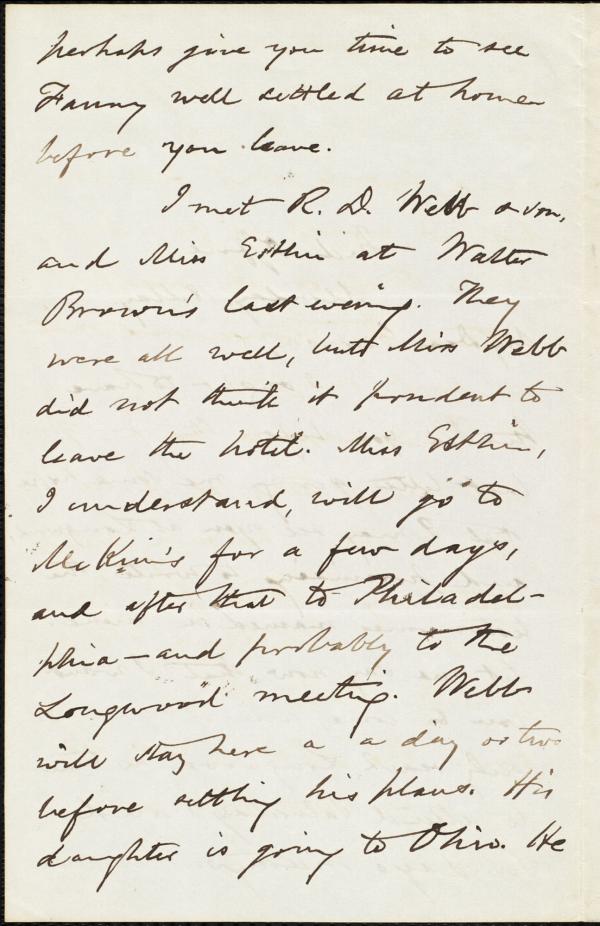 perhaps give you time to see
Fanny well settled at home
before you leave.
I met R. D. Webb & son,
and Miss Esthin at Walter
Brown's last evening. They
were all well, but Miss Webb
did not think it prudent to
leave the hotel. Miss Esthin,
I understand, will go to
McKim's for a few days,
and after that to Philadel-
phia—and probably to the
Longwood meeting. Webb
will stay here a a day or two
before settling his plans. His
daughter is going to Ohio. He